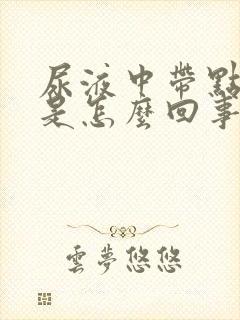 尿液中帶點
是怎麼回事
雲夢悠悠